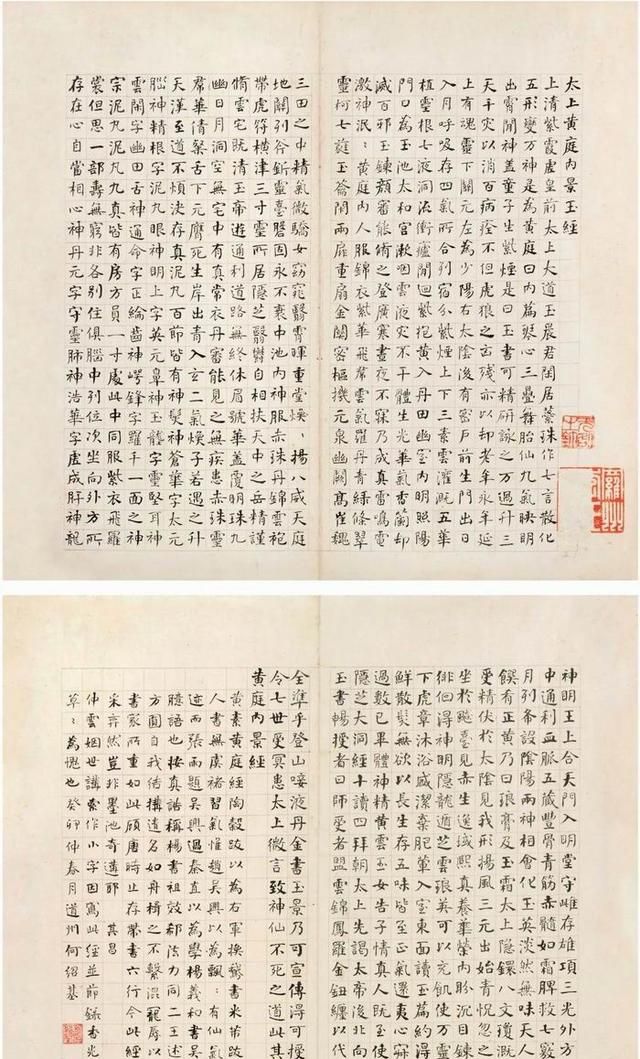 太上黃庭內景玉經
上清紫霞虛皇前太上大道玉晨君閒居蘂珠作七言散化
五形變万神是為黃庭曰內篇琴心三疊舞胎仙九氣映明
出霄閒神蓋童子生紫煙是曰玉書可精研詠之万過升三
天千灾以消百病痊不但虎狼之凶殘亦以却老年永年延
上有魂靈下關元左為少陽右太陰後有密戶前生門出日
入月呼吸存四氣所合列宿分紫煙上下三素雲灌溉五華
植靈根七液洞流衝廬閒迴紫抱黃入丹田幽室內明照陽
門口為玉池太和官漱咽靈液灾不干體生光華氣香蘭却
滅百邪玉鍊顏審能修之登廣寒晝夜不寐乃成真雷鳴電
激神泯泯黃庭內人服錦衣紫華飛帬雲氣羅丹青綠條翠
靈柯七蕤玉籥閉兩扉重扇金關密樞機元泉幽闕高崔巍
三田之中精氣微嬌女窈窕翳霄暉重堂煥煥揚八威天庭
地關列斧斨靈臺磐固永不衰中池內神服赤珠丹錦雲袍
帶虎符橫津三寸靈所居隱芝翳鬱自相扶天中之岳精謹
脩雲宅既清玉帝遊通利道路無終休眉號華蓋覆明珠九
幽日月洞空無宅中有真常衣丹審能見之無疾患赤珠靈
帬華蒨粲舌下元膺死生岸出青入玄二氣煥子若遇之升
天漢至道不煩決存真泥丸百節皆有神髮神蒼華字太元
腦神精根字泥丸眼神明上字英元鼻神玉壟字靈堅耳神
雲閒字幽田舌神通命字正綸齒神崿鋒字羅千一面之神
宗泥丸泥丸九真皆有房方員一寸處此中同服紫衣飛羅
裳但思一部壽無窮非各別住俱腦中列位次坐向外方所
存在心自當相心神丹元字守靈肺神浩華字虛成肝神龍
神明王上合天門入明堂守雌存雄項三光外方
中通利血脈五藏豐骨青筋赤髓如霜脾救七竅
月列布設陰陽兩神相會化玉英淡然無味天人
饌肴正黃乃曰琅膏及玉霜太上隱鐶八文瓊溉
受精伏於太陰見我形揚風三元出始青怳忽之
坐於飈臺見赤生逸域熙真養華榮內盼沉目鍊
徘徊得神明隱龍遁芝雲琅英可以充飢使万靈
下虎章沐浴盛潔棄肥葷入室東面讀玉篇約得
鮮散髮無欲以長生存五味皆至正氣還夷心寂
過數已畢體神精黃雲玉女告子情真人既至
隱芝大洞經十讀四拜朝太上先謁太帝後北向
玉書暢授者曰師受者盟雲錦鳳羅金鈕纏以代
全準乎登山唼液丹金書玉景乃可宣傳得可授
令七世受冥患太上微言致神仙不死之道此其
黃庭內景經
黃素黃庭經陶穀跋以為右軍換鵝書米芾跋
人書無虞褚習氣惟趙吳興以為飄飄有仙氣
迹而張雨題吳興過秦直以為學楊羲和書吳
臆語也按真誥稱楊書祖效郄法力同二王述
方圓自我結搆遺名如舟楫之不繫混寵辱以
書家所重如此顧唐時止存帶書六行今此經
采弈然豈非墨池奇遘耶 其昌
仲雲姻世講索作小字因寫此經並節錄香光
草草為愧也癸卯仲春月道州何紹基